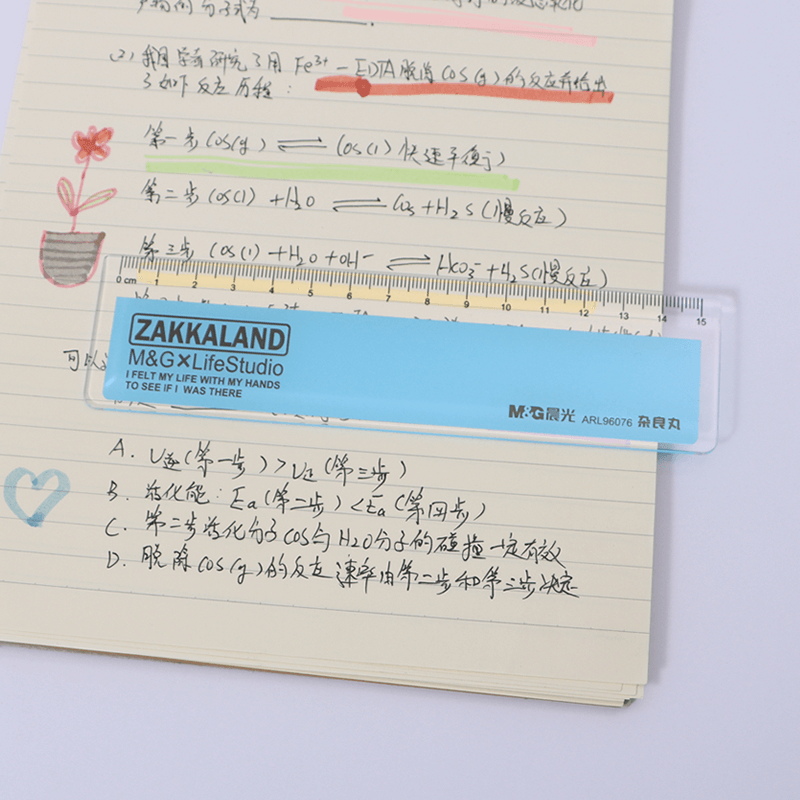 分子式为
(2) 我国学者研究了用 Fe³⁺-EDTA脱除COS(g)的反应并给出
了如下反应历程:
第一步COS(g) ⇌ COS(l) 快速平衡)
第二步COS(l) + H₂O ⇌ CO₂+H₂S(慢反应)
第三步 COS(l)+H₂O+OH⁻ ⇌ HCO₃⁻+H₂S(慢反应)
0 cm 1 2 3 4 5 6 7 8 9 10 11 12 13 14 15
ZAKKALAND
M&G×LifeStudio
I FELT MY LIFE WITH MY HANDS
TO SEE IF I WAS THERE
M&G晨光 ARL96076 杂良丸
可以
A. υ逆(第一步)>υ正(第三步)
B. 活化能: Ea(第二步)<Ea(第四步)
C. 第二步活化分子COS与H2O分子的碰撞一定有效
D. 脱除COS(g)的反应速率由第二步和第三步决定